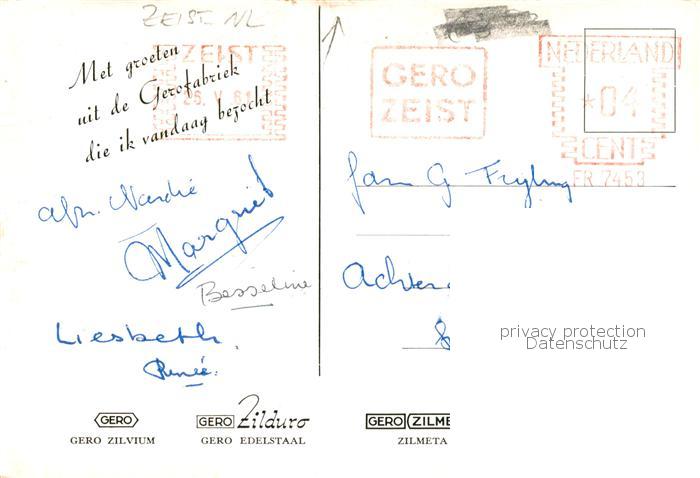 ZEIST NL
Met groeten
uit de Gerofabriek
die ik vandaag bezocht
ZEIST
25. V. 61
GERO
ZEIST
NEDERLAND
*04
CENT
FR 7453
afz. Nardie
Margriet
Besseline
Liesbeth.
Renée.
Jan G Fryling
Achter
privacy protection
Datenschutz
GERO
GERO ZILVIUM
GERO Zilduro
GERO EDELSTAAL
GERO ZILME
ZILMETA